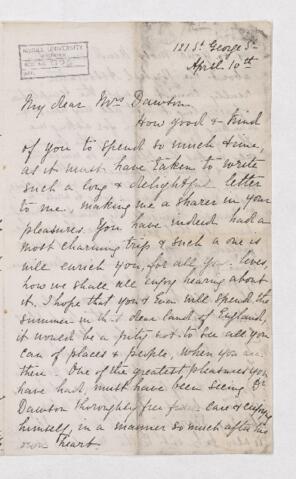 McGILL UNIVERSITY
ACC. NO.
REF.
121 St. George St
April 10th
My dear Mrs Dawson
How good & kind
of you to spend so much time,
as it must have taken to write
such a long & delightful letter
to me, making me a sharer in your
pleasures. You have indeed had a
most charming trip & such a one as
will enrich you, for all yr. lives
how we shall all enjoy hearing about
it. I hope that you & Eva will spend the
summer in that dear land of England,
it would be a pity not to see all you
can of places & people, when you are
there. One of the greatest pleasures you
have had, must have been seeing Dr
Dawson thoroughly free from care & enjoying
himself, in a manner so much after his
own heart.